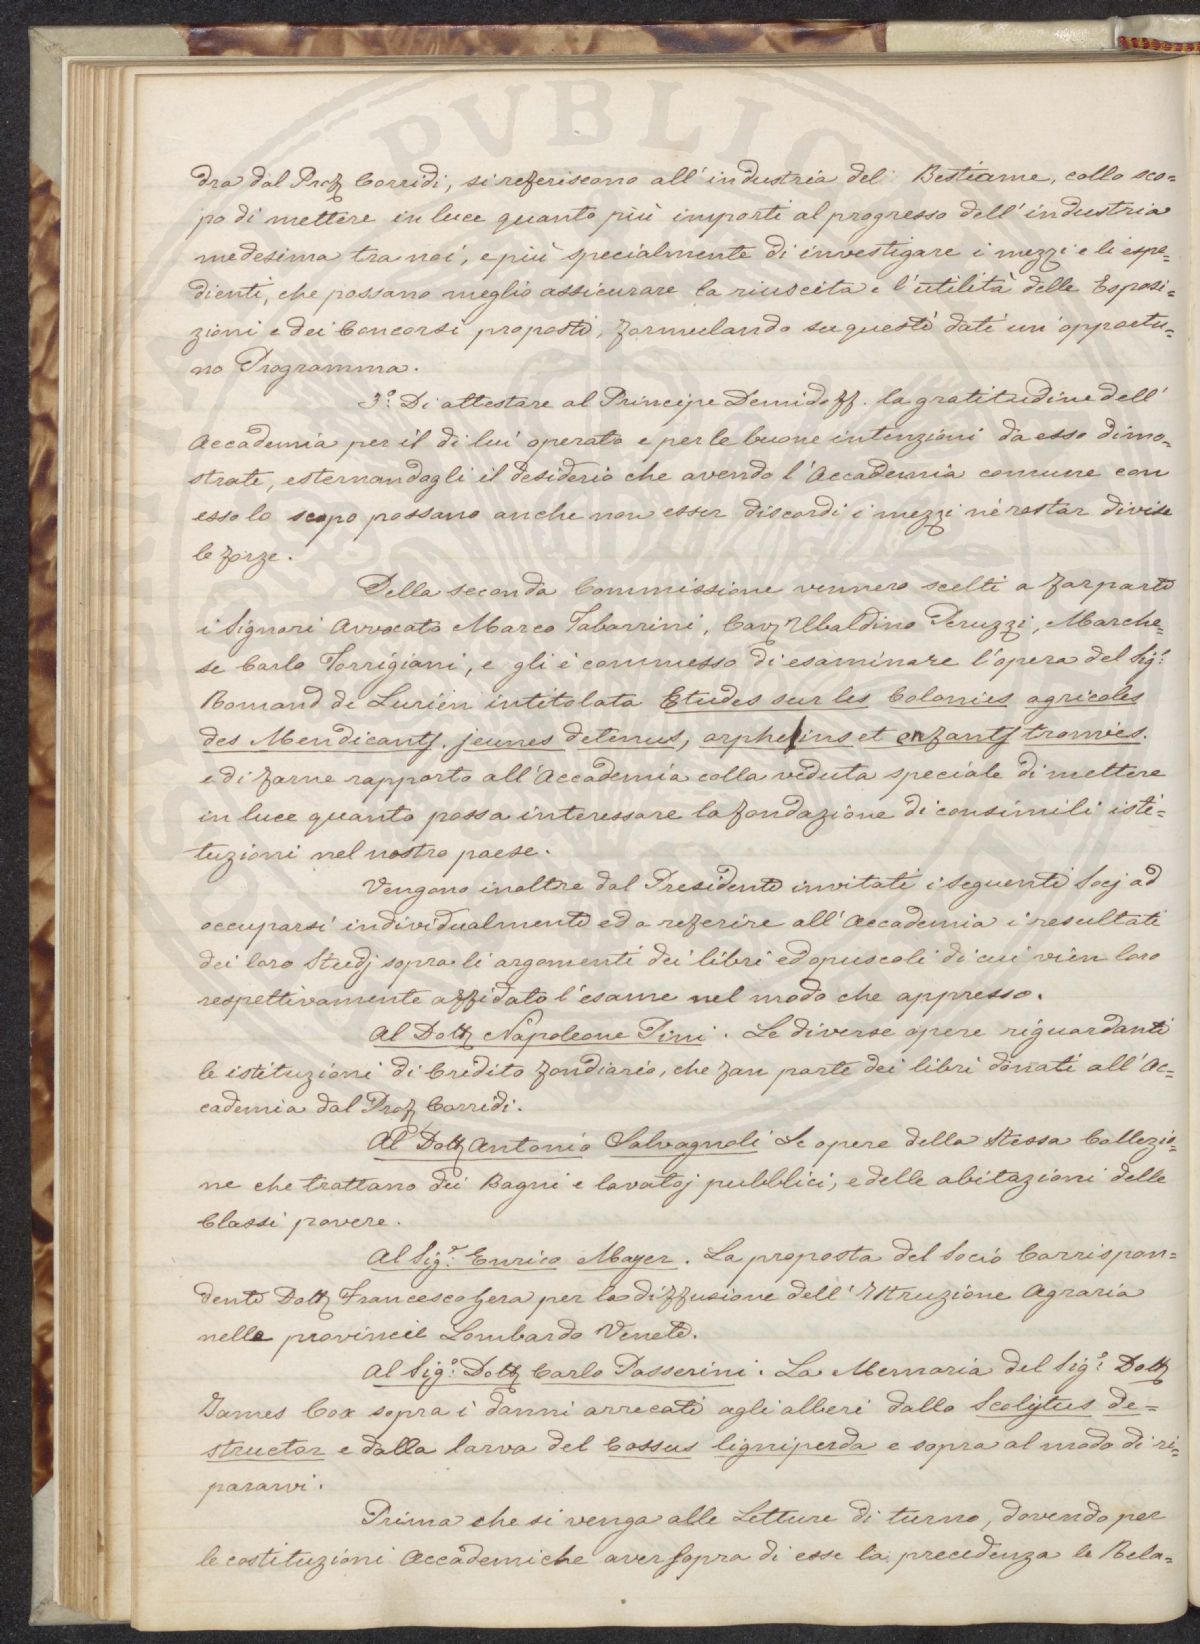 PVBLIC
dra dal Prof Corridi, si referiscono all'industria del Bestiame, collo sco=
po di mettere in luce quanto più importi al progresso dell'industria
medesima tra noi, e più specialmente di investigare i mezzi e li espe=
dienti, che possano meglio assicurare la riuscita e l'utilità delle Esposi=
zioni e dei Concorsi proposti, formulando su questi dati un'opportu=
no Programma.
3.° Di attestare al Principe Demidoff la gratitudine dell'
Accademia per il di lui operato e per le buone intenzioni da esso dimo=
strate, esternandogli il desiderio che avendo l'Accademia comune con
esso lo scopo possano anche non esser discordi i mezzi nè restar divise
le forze.
Della seconda Commissione vennero scelti a far parte
i Signori Avvocato Marco Tabarrini, Cav Ubaldino Peruzzi, Marche=
se Carlo Torrigiani, e gli è commesso di esaminare l'opera del Sig.r
Romand de Lurieu intitolata Etudes sur les Colonies agricoles
des Mendicants, jeunes detenus, orphelins et enfants trouvés.
e di farne rapporto all'Accademia colla veduta speciale di mettere
in luce quanto possa interessare la fondazione di consimili isti=
tuzioni nel nostro paese.
Vengono inoltre dal Presidente invitati i seguenti Socj ad
occuparsi individualmente ed a referire all'Accademia i resultati
dei loro Studj sopra li argomenti dei libri ed opuscoli di cui vien loro
respettivamente affidato l'esame nel modo che appresso.
Al Dott Napoleone Pini. Le diverse opere riguardanti
le istituzioni di Credito fondiario, che fan parte dei libri donati all'Ac=
cademia dal Prof Corridi.
Al Dott Antonio Salvagnoli Le opere della stessa Collezio=
ne che trattano dei Bagni e lavatoj pubblici, e delle abitazioni delle
Classi povere.
Al Sig.r Enrico Mayer. La proposta del Socio Corrispon=
dente Dott Francesco Gera per la diffusione dell'Istruzione Agraria
nelle provincie Lombardo Venete.
Al Sig.r Dott Carlo Passerini. La Memoria del Sig.r Dott
James Cox sopra i danni arrecati agli alberi dallo Scolytus de=
structor e dalla larva del Cossus ligniperda e sopra al modo di ri=
pararvi.
Prima che si venga alle Letture di turno, dovendo per
le costituzioni Accademiche aver sopra di esse la precedenza le Rela=